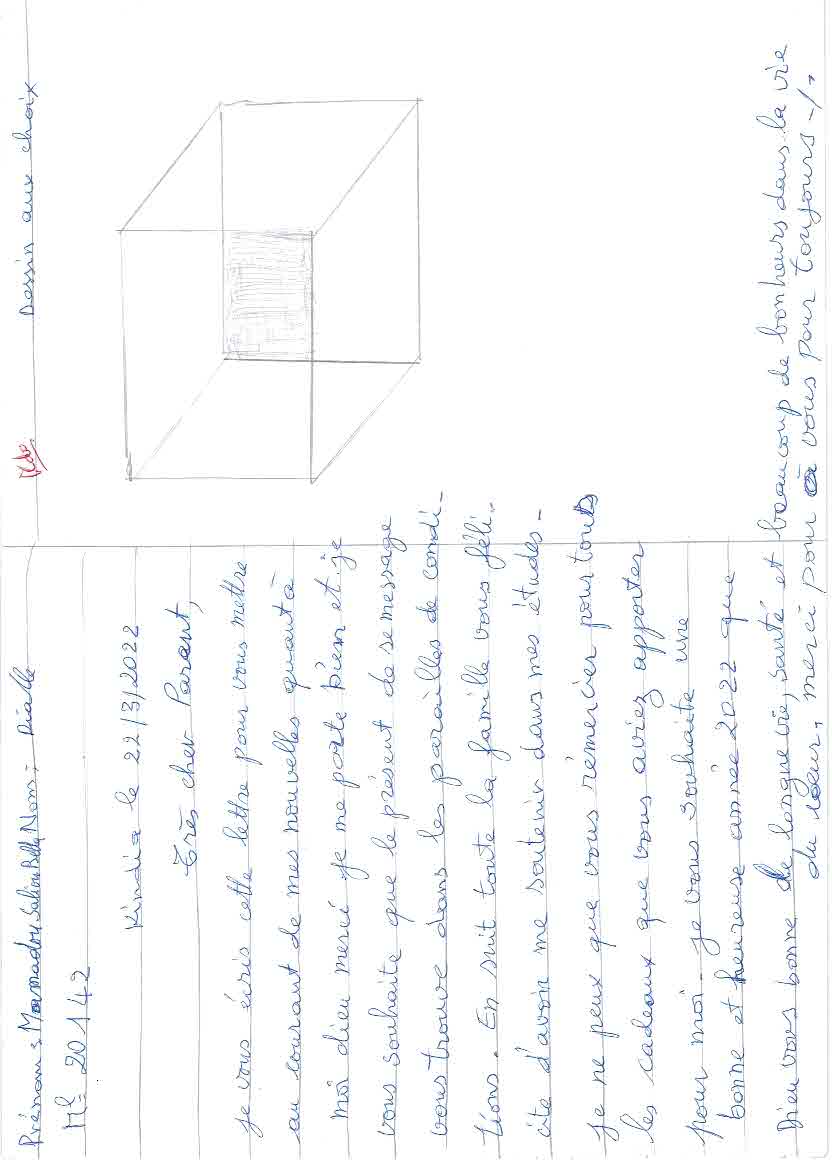 Prénoms Mamadou Saliou Billy Nom: Diallo
Mle 20142
Kindia le 22/3/2022
Très cher Parent,
je vous écris cette lettre pour vous mettre
au courant de mes nouvelles quant à
moi dieu merci je me porte bien et je
vous souhaite que le présent de se message
vous trouve dans les parailles de condi-
tions. En suit toute la famille vous féli-
cite d'avoir me soutenir dans mes études-
je ne peux que vous rémercier pour touts
les cadeaux que vous aviez apporter
pour moi. je vous souhaite une
bonne et heureuse année 2022 que
Dieu vous bonne de longue vie, santé et beaucoup de bonheurs dans la vie
du cœur, merci pour à vous pour toujours -/,
Dessin aux choix